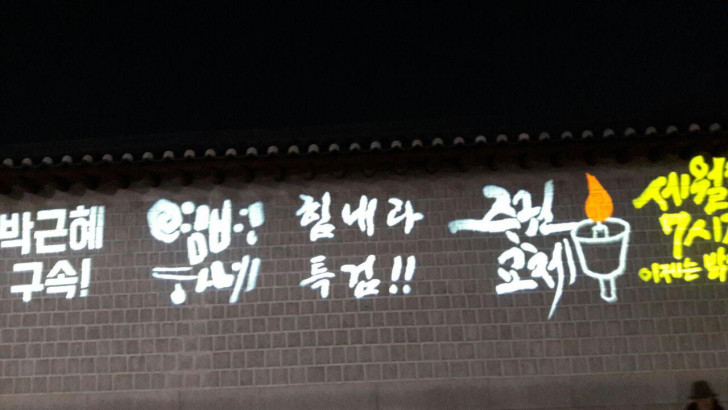 박근혜
구속!
함께
힘내라
특검!!
주권
교체
세월
7시
이제는 밝